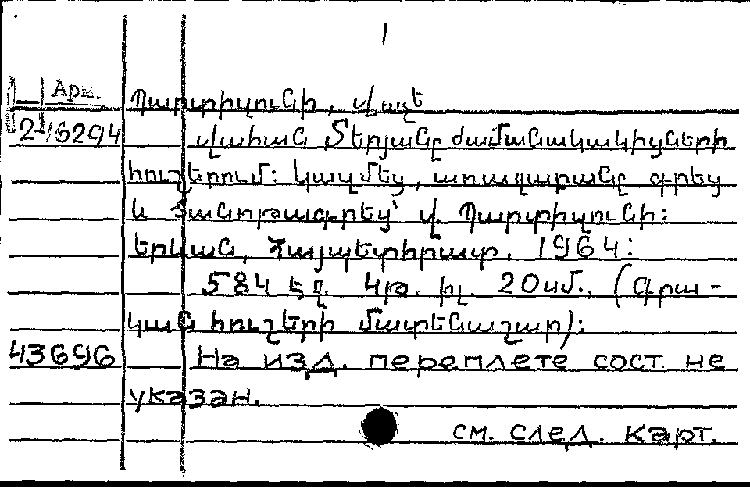 1
Арм. Պարտիզունի, Վաչե
2-46294 Վահան Տերյանը ժամանակակիցների
հուշերում: Կազմեց, առաջաբանը գրեց
և ծանոթագրեց՝ Վ. Պարտիզունի:
Երևան, Հայպետհրատ, 1964:
584 էջ. 4թ. իլ. 20սմ., (Գրա-
կան հուշերի մատենաշար):
43696 На изд. переплете сост. не
указан.
см. след. карт.